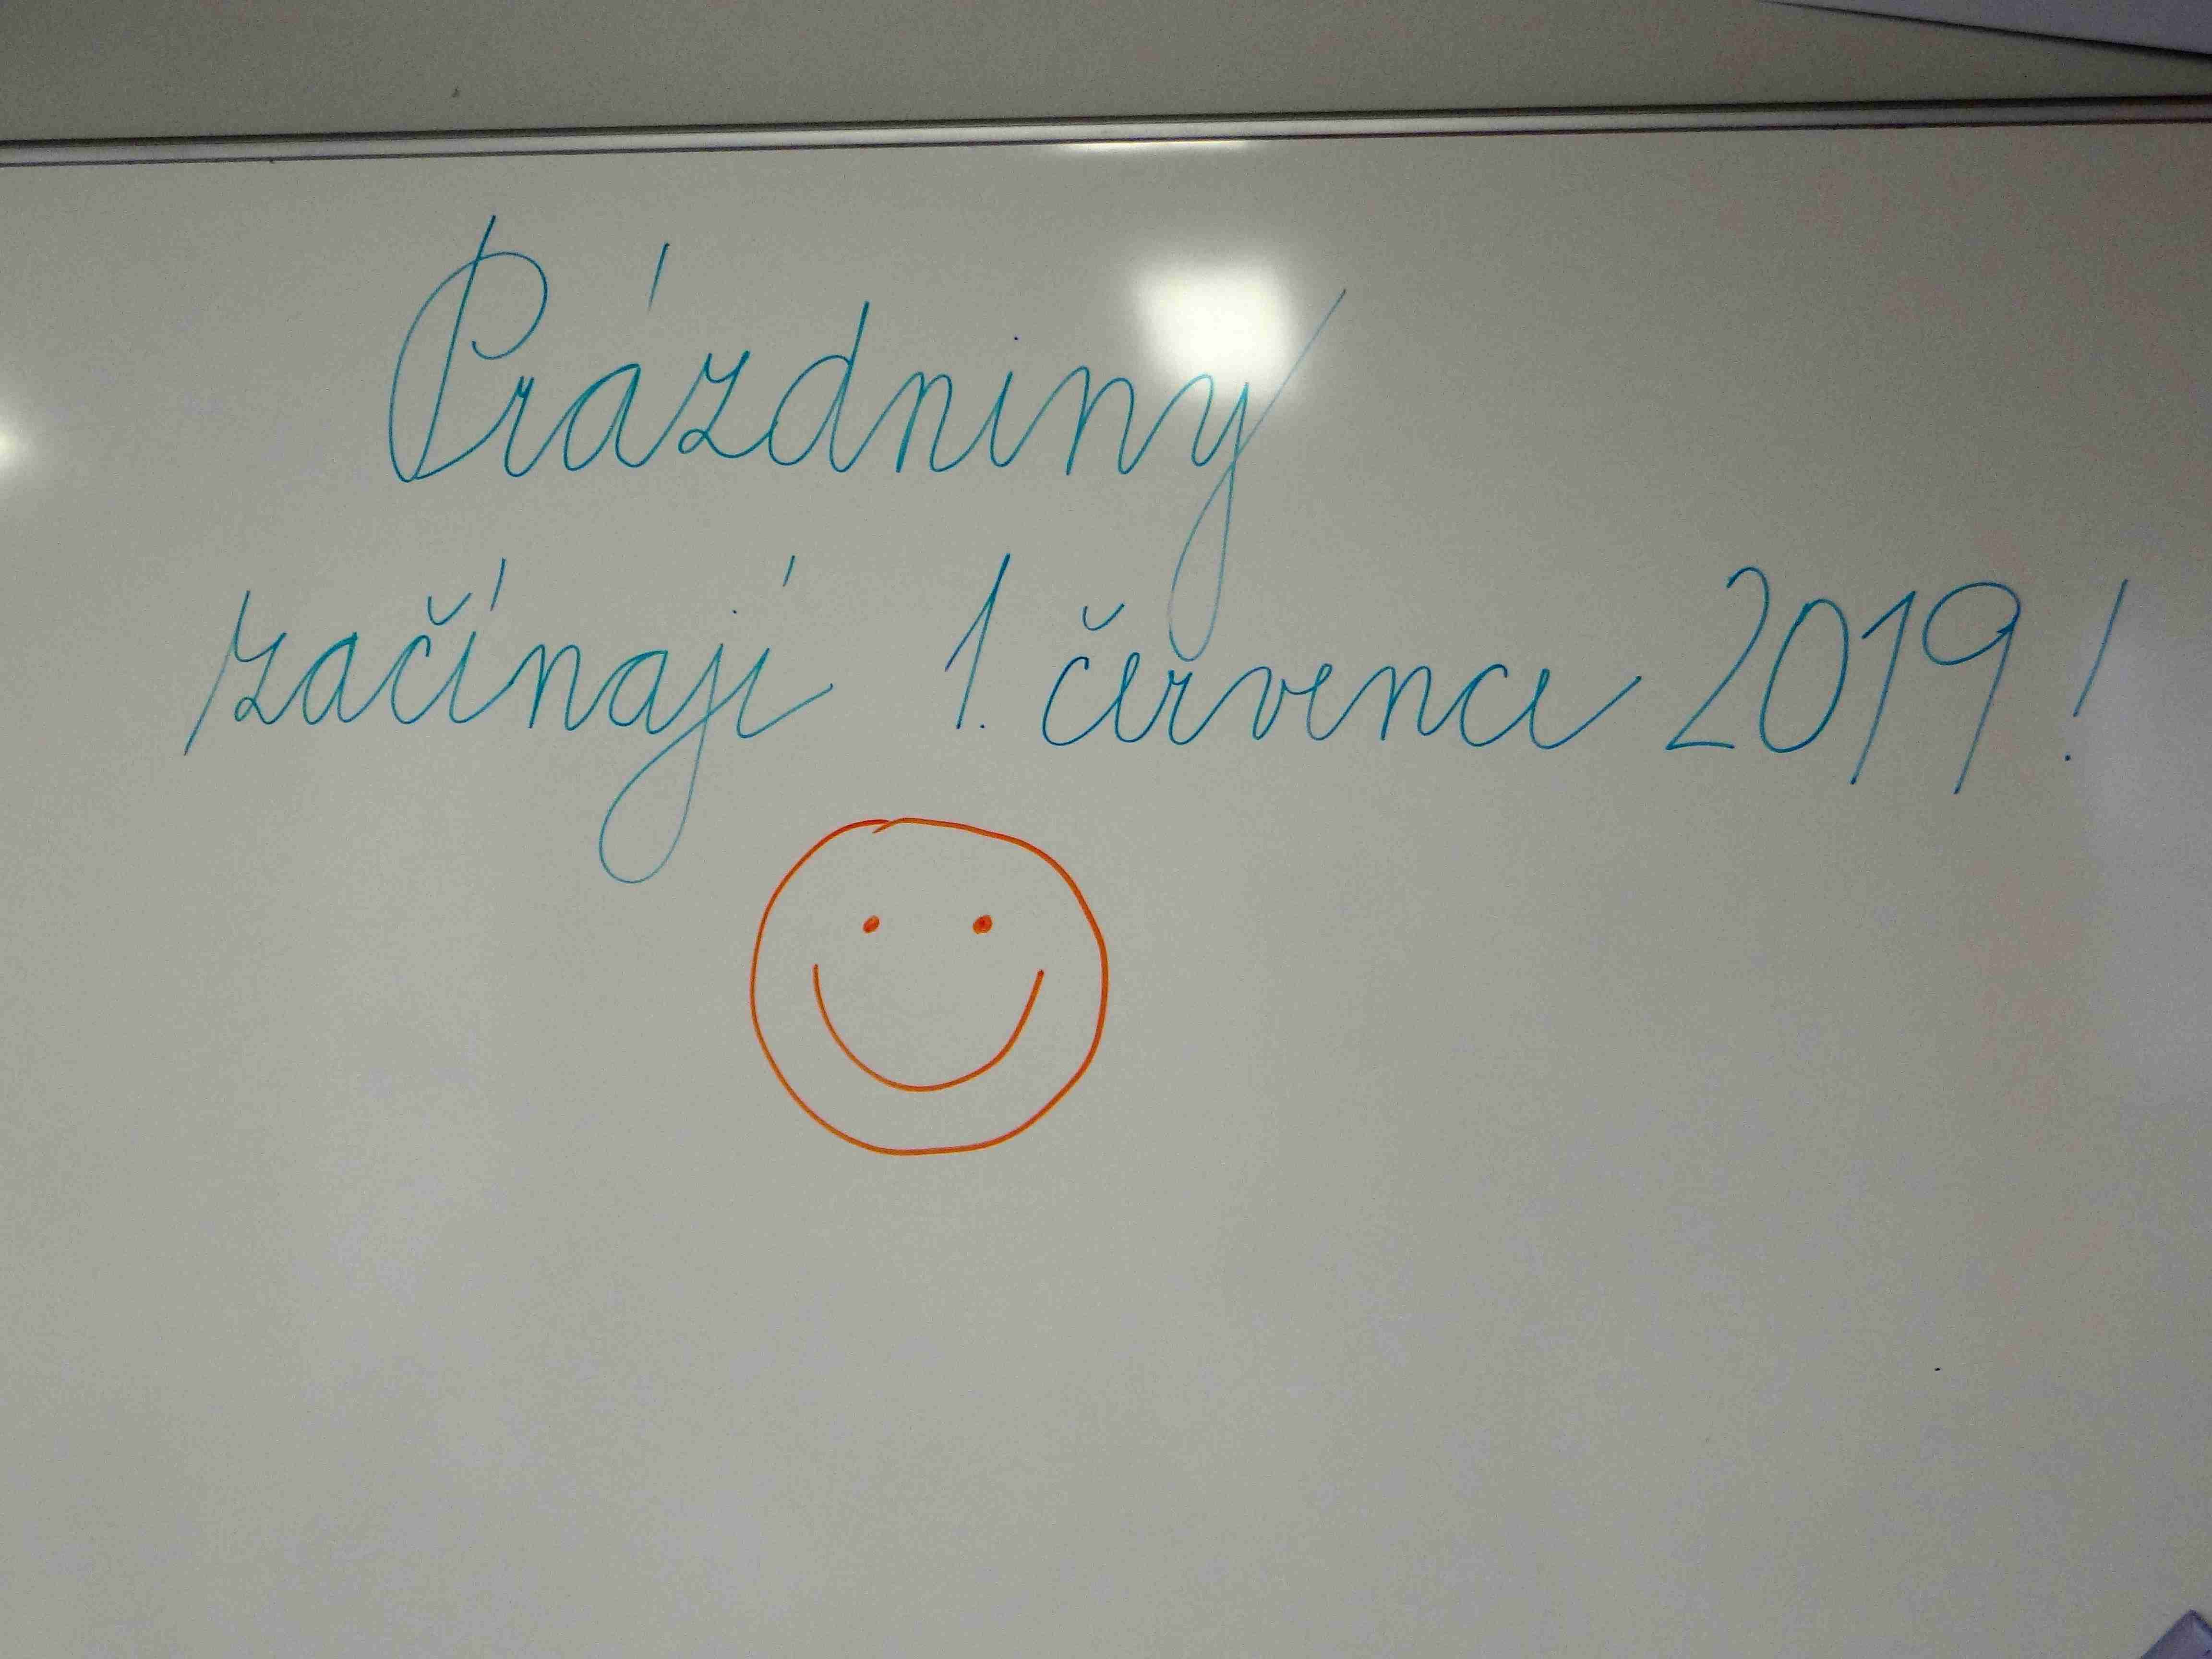 Prázdniny
začínají 1. července 2019!